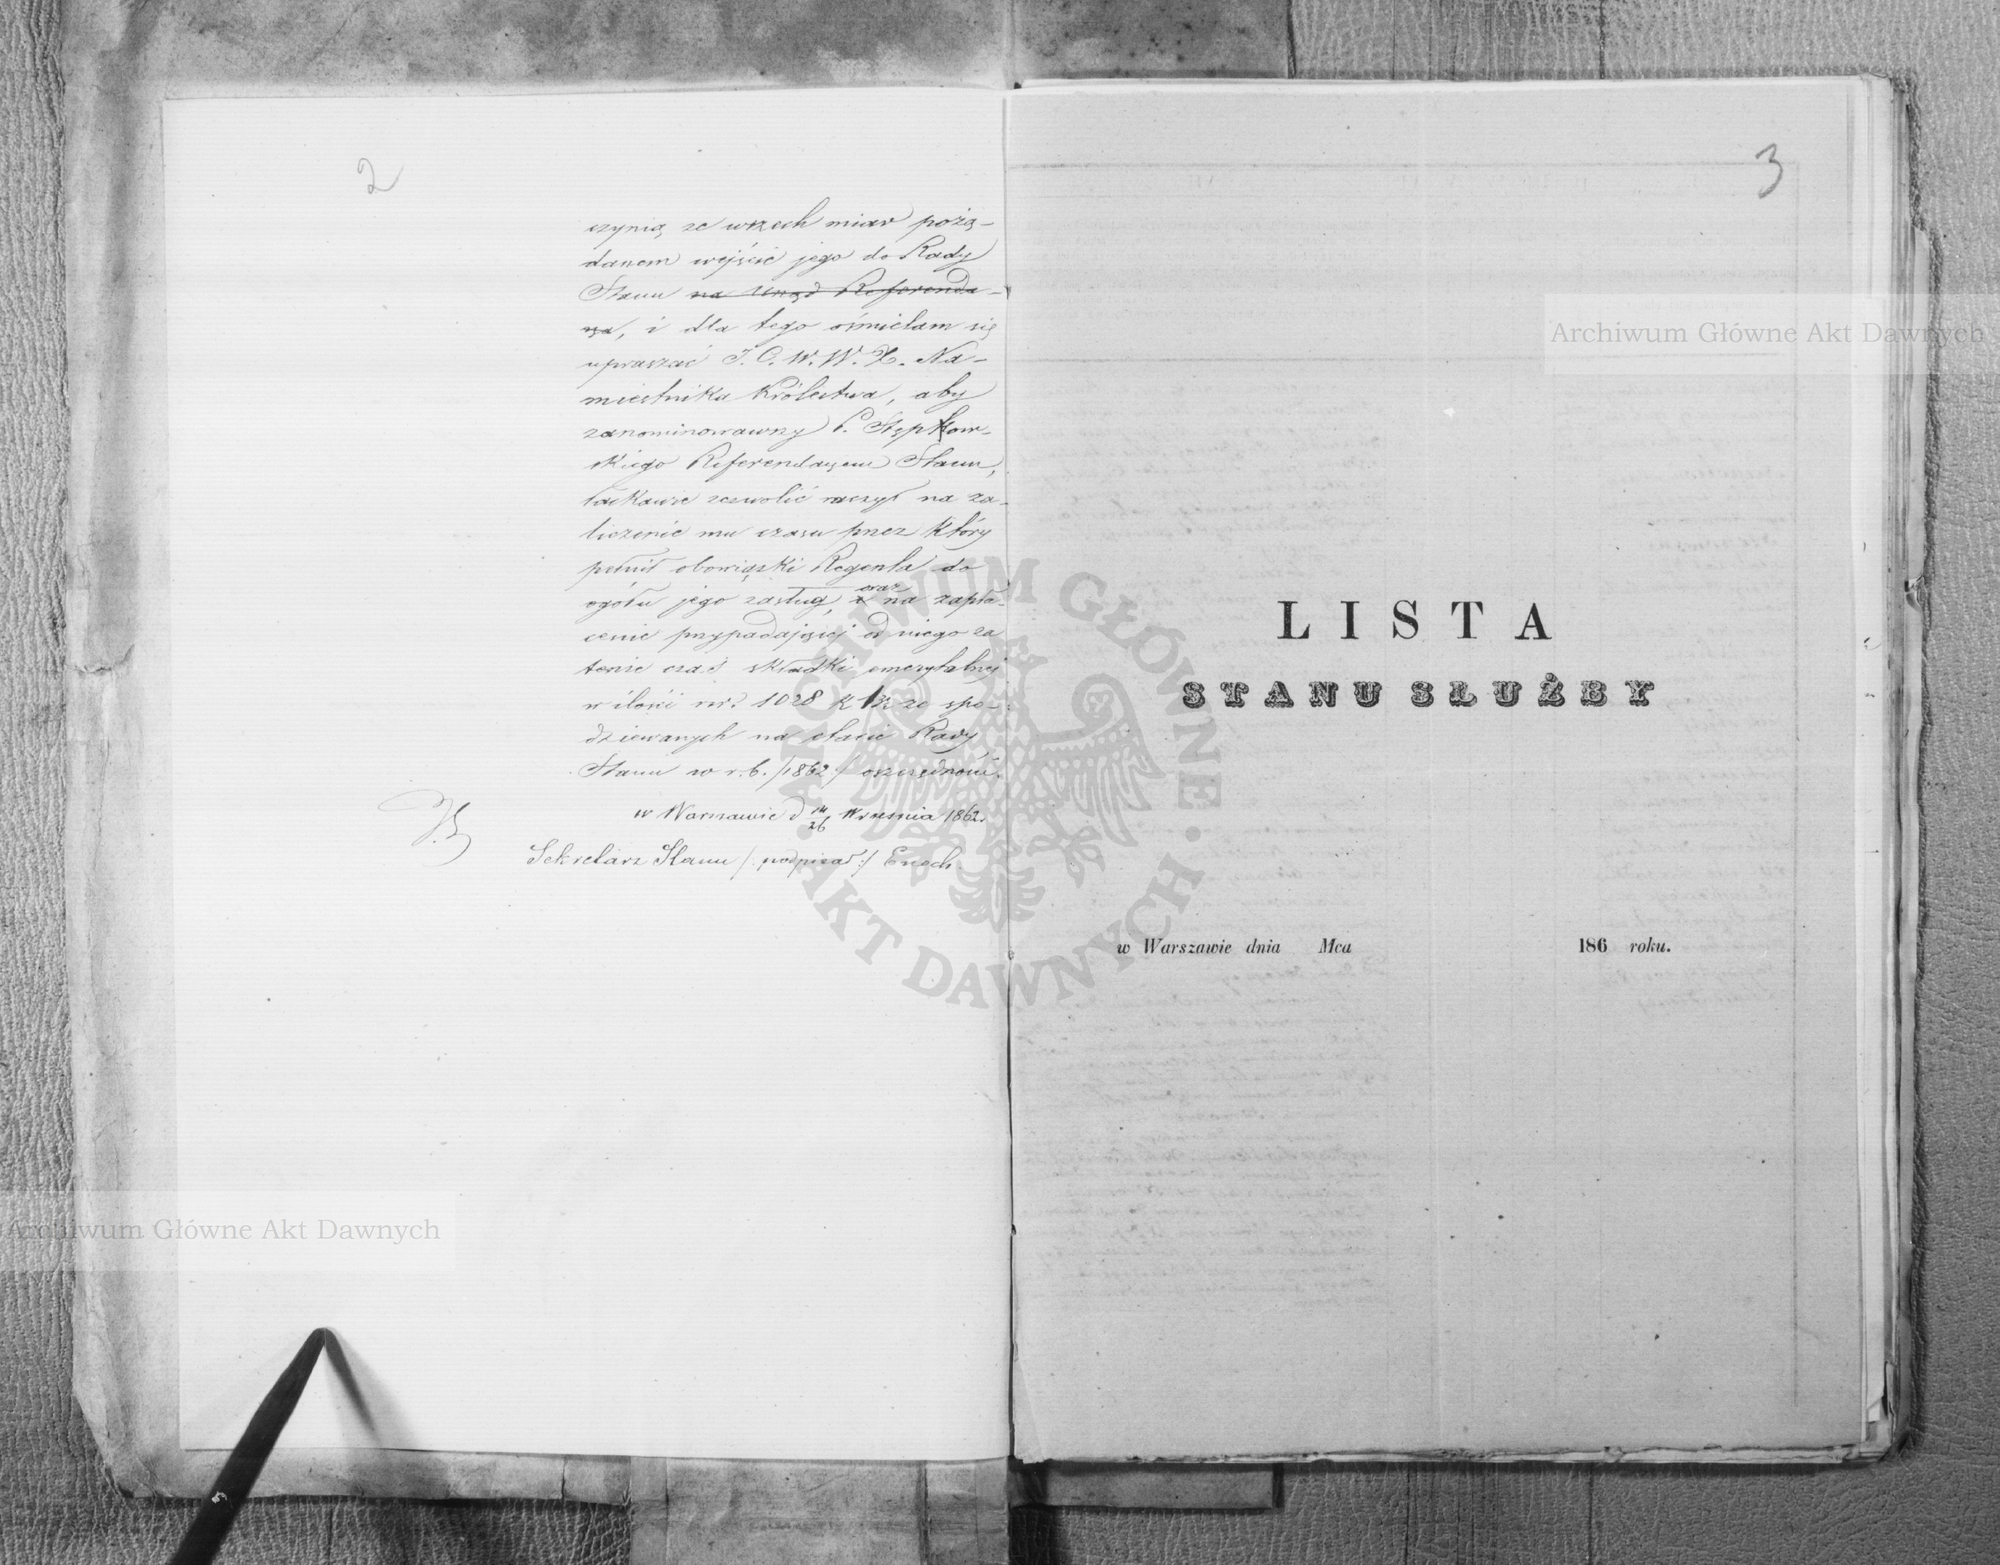 2
czynią ze wszech miar pożą-
danem wejście jego do Rady
Stanu na Urząd Referenda-
rza, i dla tego ośmielam się
upraszać J. O. W. W. X. Na-
miestnika Królestwa, aby
zanominowawszy P. Stępkow-
skiego Referendarzem Stanu,
łaskawie zezwolić raczył na za-
liczenie mu czasu przez który
pełnił obowiązki Regenta do
ogółu jego zasług, oraz na zapła-
cenie przypadającej od niego za
tenże czas składki emerytalnej
w ilości rsr. 1028 k ze spo-
dziewanych na etacie Rady
Stanu w r. b. /1862/ oszczędności.
w Warszawie d 14/26 Września 1862.
Sekretarz Stanu /:podpisał:/ Enoch.
3
LISTA
STANU SŁUŻBY
w Warszawie dnia Mca 186 roku.
Archiwum Główne Akt Dawnych
Archiwum Główne Akt Dawnych
ARCHIWUM GŁÓWNE · AKT DAWNYCH ·